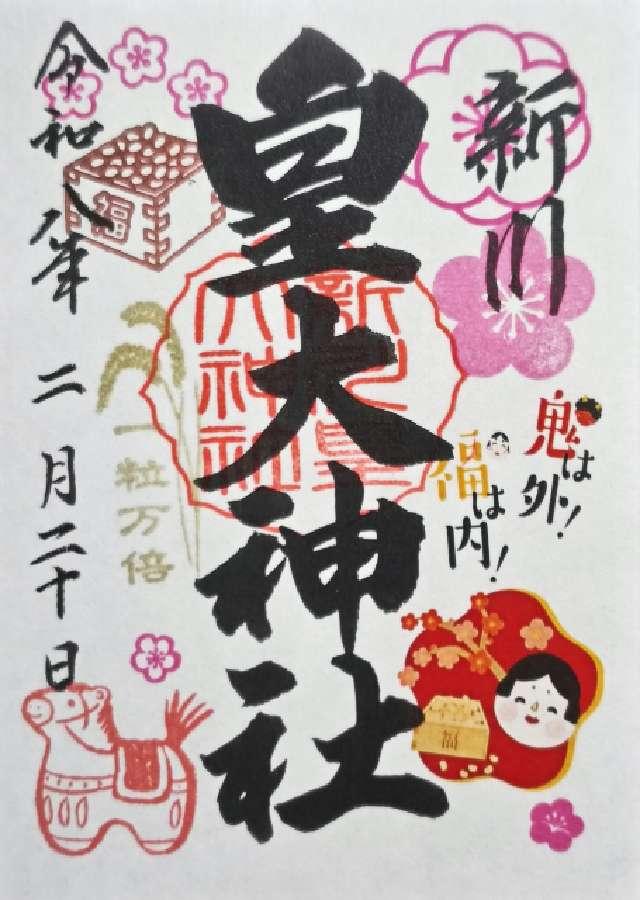 新川
皇大神社
令和八年 二月二十日
新川皇
大神社
鬼は外!
福は内!
一粒万倍
福
福